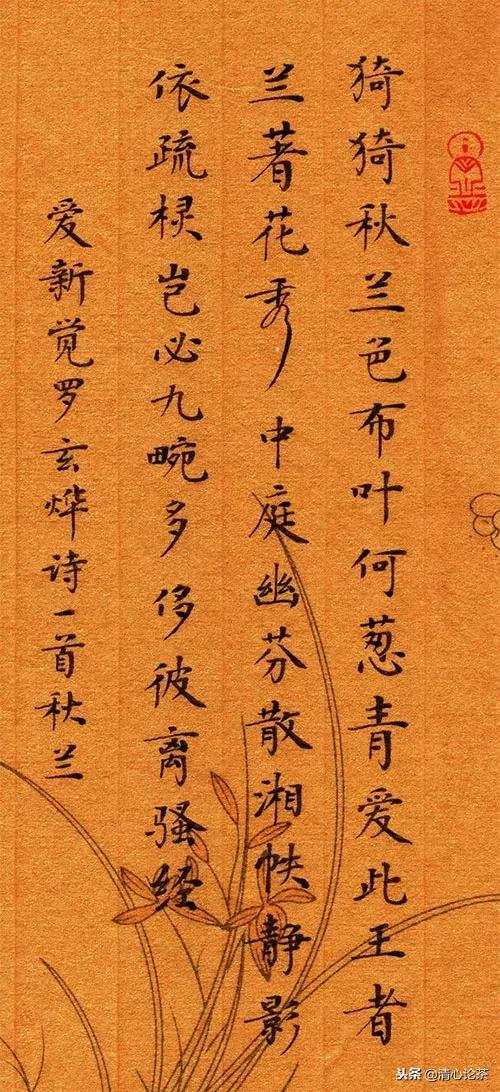 猗猗秋兰色布叶何葱青爱此王者
兰著花秀中庭幽芬散湘帙静影
依疏棂岂必九畹多侈彼离骚经
爱新觉罗玄烨诗一首秋兰
头条 @清心论茶